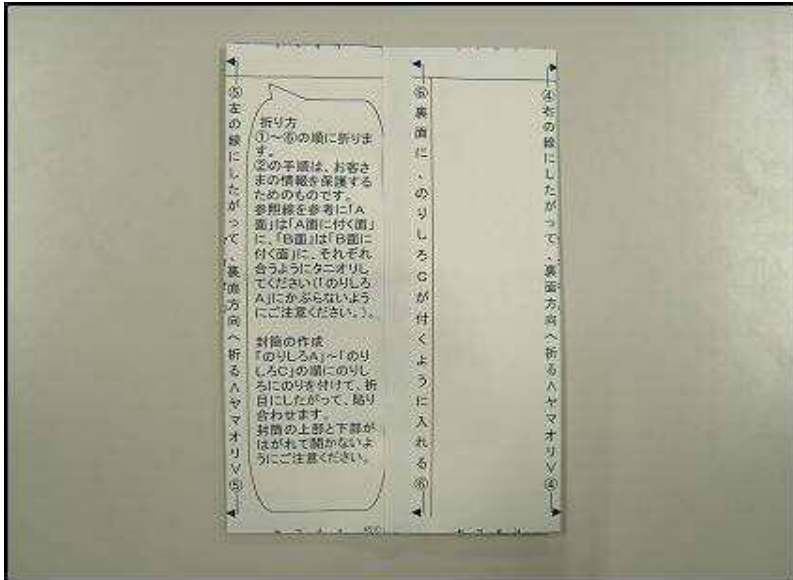 ⑤左の線にしたがって、裏面方向へ折る<ヤマオリ>⑤
折り方
①～⑥の順に折りま
す。
②の手順は、お客さ
まの情報を保護する
ためのものです。
参照線を参考に「A
面」は「A面に付く面」
に、「B面」は「B面に
付く面」に、それぞれ
合うようにタニオリし
てください(「のりしろ
A」にかぶらないよう
にご注意ください。)。
封筒の作成
「のりしろA」～「のり
しろC」の順にのりし
ろにのりを付けて、折
目にしたがって、貼り
合わせます。
封筒の上部と下部が
はがれて開かないよ
うにご注意ください。
⑥裏面に、のりしろCが付くように入れる⑥
④右の線にしたがって、裏面方向へ折る<ヤマオリ>④